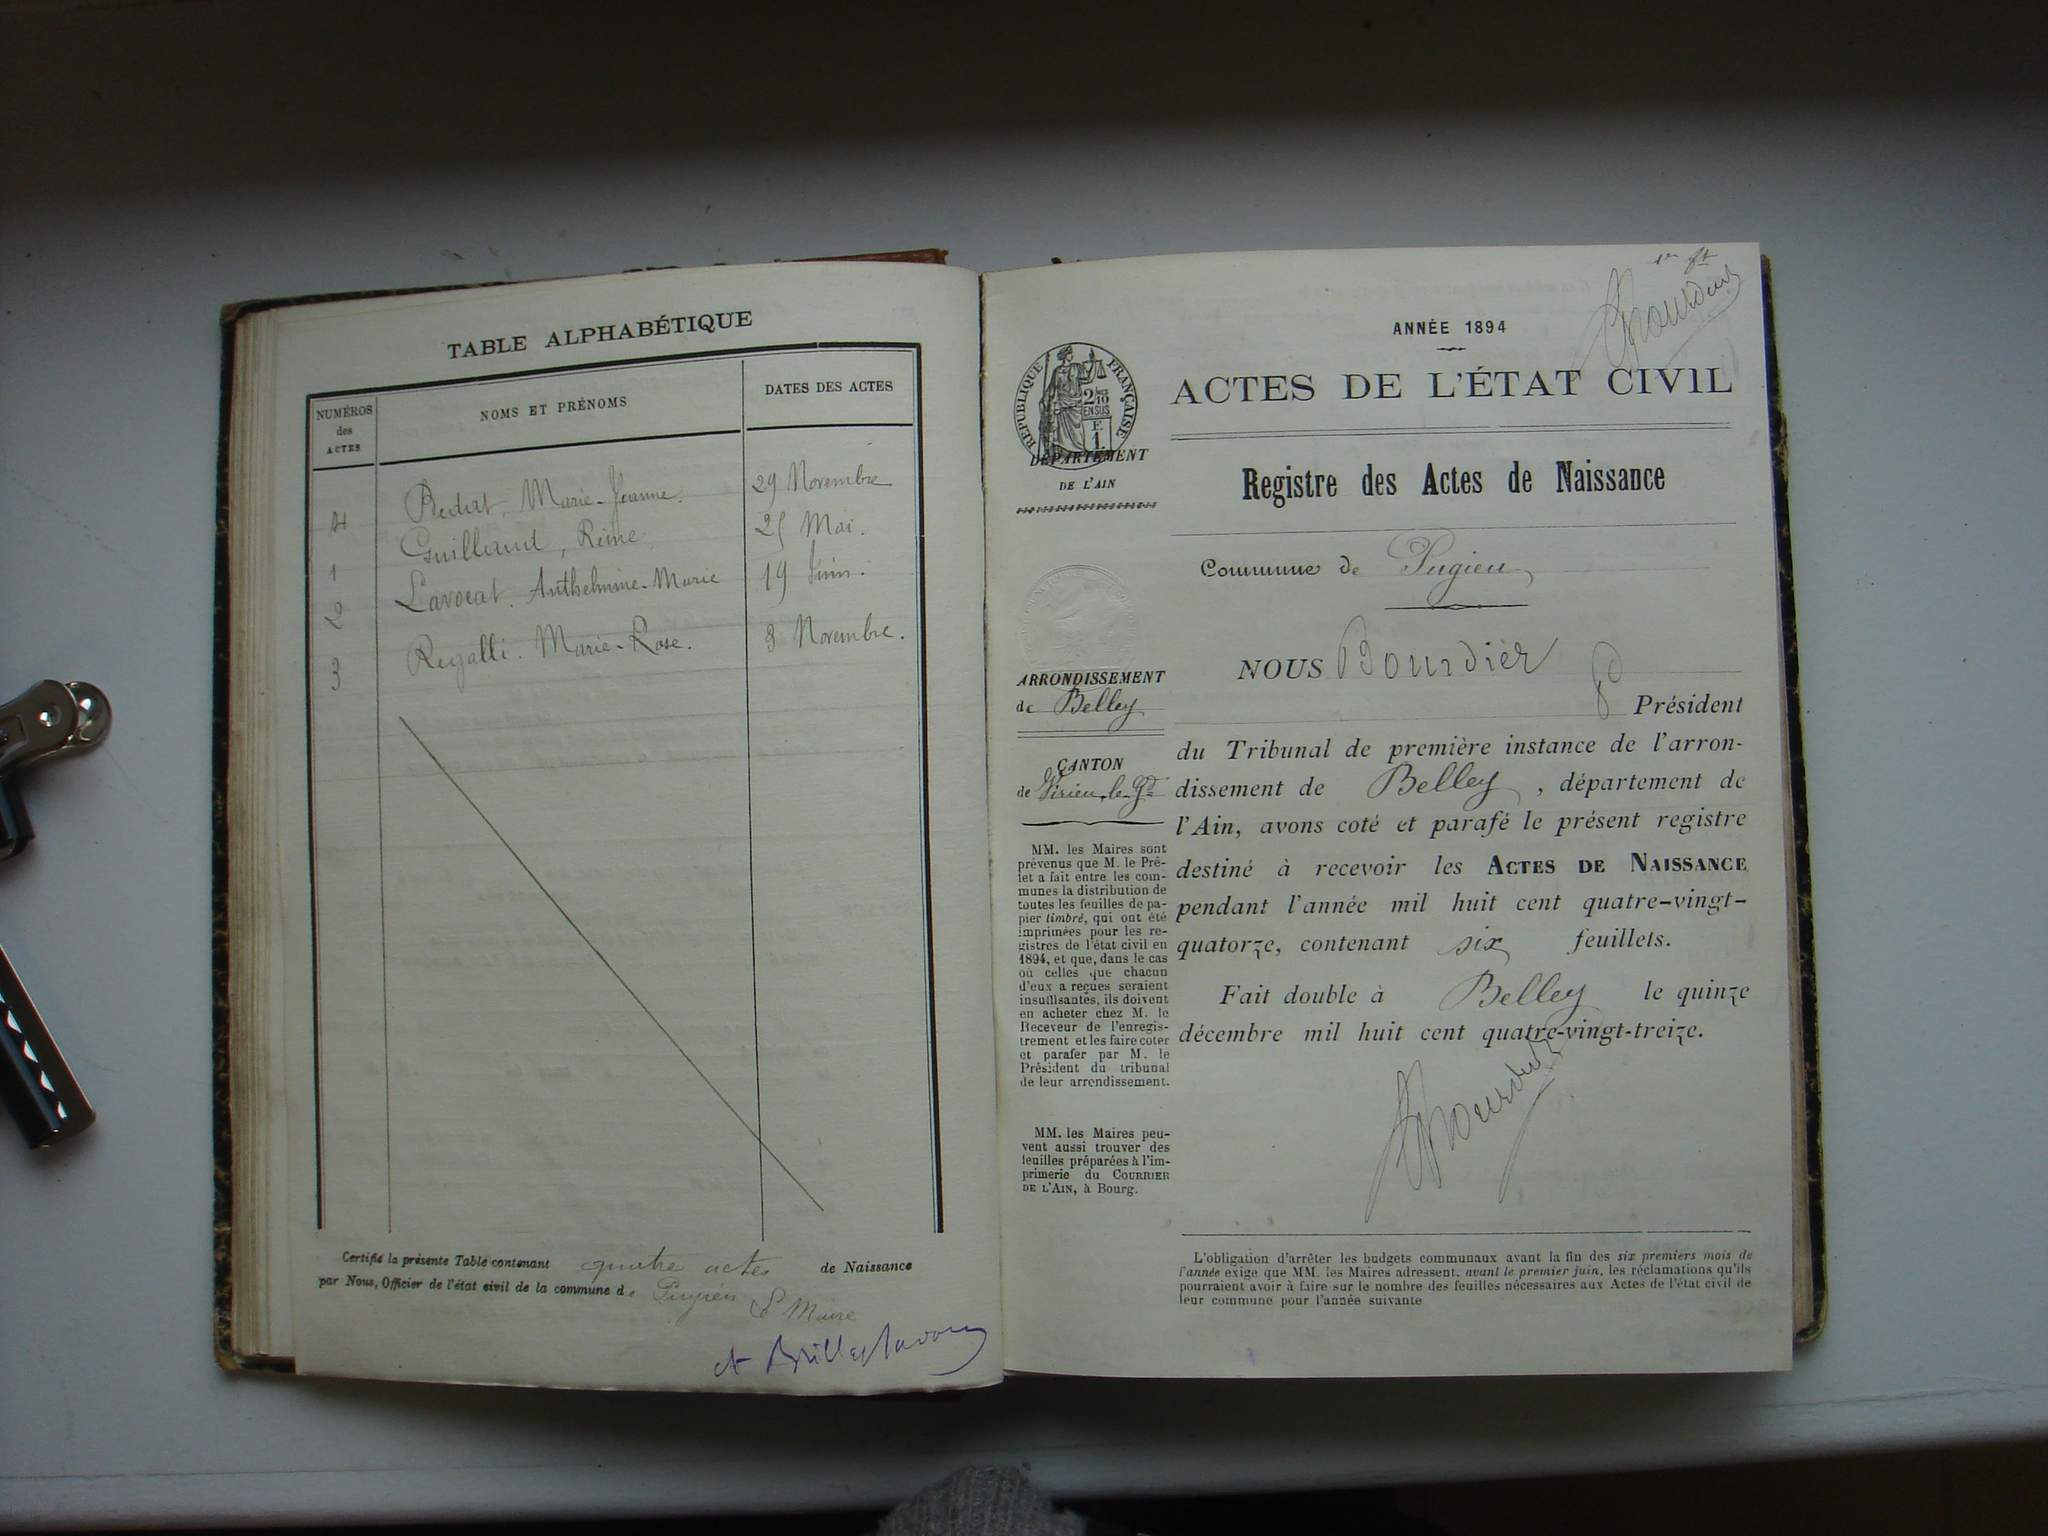 TABLE ALPHABÉTIQUE
NUMÉROS des ACTES
NOMS ET PRÉNOMS
DATES DES ACTES
4 Marie-Jeanne. 29 Novembre
1 Guilland, Reine 25 Mai.
2 Lavocat. Anthelmine-Marie 19 Juin.
3 Marie-Rose. 8 Novembre.
Certifié la présente Table contenant quatre actes de Naissance
par Nous, Officier de l'état civil de la commune de Pugieu
Le Maire
ANNÉE 1894
ACTES DE L'ÉTAT CIVIL
RÉPUBLIQUE FRANÇAISE
2/10
EN SUS
F.
1
DÉPARTEMENT
DE L'AIN
Registre des Actes de Naissance
Commune de Pugieu
ARRONDISSEMENT
de Belley
CANTON
de Virieu-le-Gd
MM. les Maires sont
prévenus que M. le Pré-
fet a fait entre les com-
munes la distribution de
toutes les feuilles de pa-
pier timbré, qui ont été
imprimées pour les re-
gistres de l'état civil en
1894, et que, dans le cas
où celles que chacun
d'eux a reçues seraient
insuffisantes, ils doivent
en acheter chez M. le
Receveur de l'enregis-
trement et les faire coter
et parafer par M. le
Président du tribunal
de leur arrondissement.
MM. les Maires peu-
vent aussi trouver des
feuilles préparées à l'im-
primerie du COURRIER
DE L'AIN, à Bourg.
NOUS Bourdier
Président
du Tribunal de première instance de l'arron-
dissement de Belley, département de
l'Ain, avons coté et parafé le présent registre
destiné à recevoir les ACTES DE NAISSANCE
pendant l'année mil huit cent quatre-vingt-
quatorze, contenant six feuillets.
Fait double à Belley le quinze
décembre mil huit cent quatre-vingt-treize.
L'obligation d'arrêter les budgets communaux avant la fin des six premiers mois de
l'année exige que MM. les Maires adressent, avant le premier juin, les réclamations qu'ils
pourraient avoir à faire sur le nombre des feuilles nécessaires aux Actes de l'état civil de
leur commune pour l'année suivante